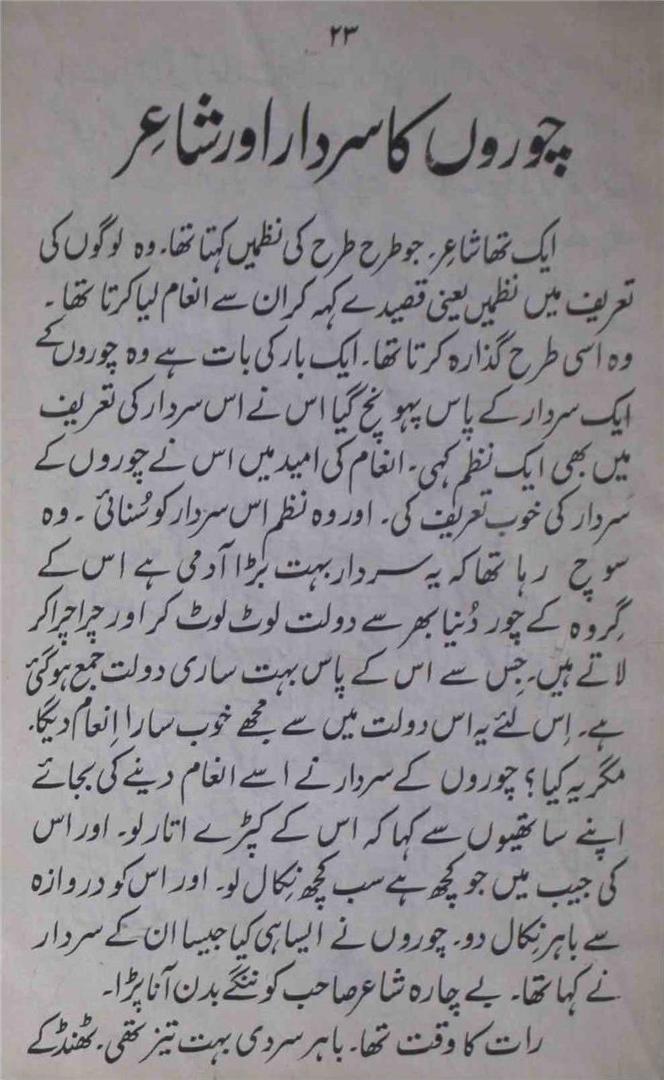 ۲۳
چوروں کا سردار اور شاعِر
ایک تھا شاعِر، جو طرح طرح کی نظمیں کہتا تھا۔ وہ لوگوں کی
تعریف میں نظمیں یعنی قصیدے کہہ کر ان سے انعام لیا کرتا تھا۔
وہ اسی طرح گذارہ کرتا تھا۔ ایک بار کی بات ہے وہ چوروں کے
ایک سردار کے پاس پہونچ گیا اس نے اس سردار کی تعریف
میں بھی ایک نظم کہی۔ انعام کی امید میں اس نے چوروں کے
سردار کی خوب تعریف کی۔ اور وہ نظم اس سردار کو سُنائی۔ وہ
سوچ رہا تھا کہ یہ سردار بہت بڑا آدمی ہے اس کے
گِروہ کے چور دُنیا بھر سے دولت لوٹ لوٹ کر اور چرا چرا کر
لاتے ہیں۔ جِس سے اس کے پاس بہت ساری دولت جمع ہو گئی
ہے۔ اِس لئے یہ اس دولت میں سے مجھے خوب سارا اِنعام دیگا۔
مگر یہ کیا؟ چوروں کے سردار نے اسے انعام دینے کی بجائے
اپنے ساتھیوں سے کہا کہ اس کے کپڑے اتار لو۔ اور اس
کی جیب میں جو کچھ ہے سب کچھ نِکال لو۔ اور اس کو دروازہ
سے باہر نِکال دو۔ چوروں نے ایسا ہی کیا جیسا ان کے سردار
نے کہا تھا۔ بے چارہ شاعر صاحب کو ننگے بدن آنا پڑا۔
رات کا وقت تھا۔ باہر سردی بہت تیز تھی۔ ٹھنڈ کے